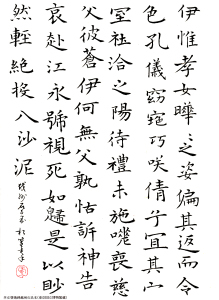 伊惟孝女曄〻之姿偏其返而令
色孔儀窈窕巧咲倩兮宜其家
室在洽之陽待禮未施嗟喪慈
父彼蒼伊何無父孰怙訴神告
哀赴江永號視死如歸是以眇
然輕絕投入沙泥